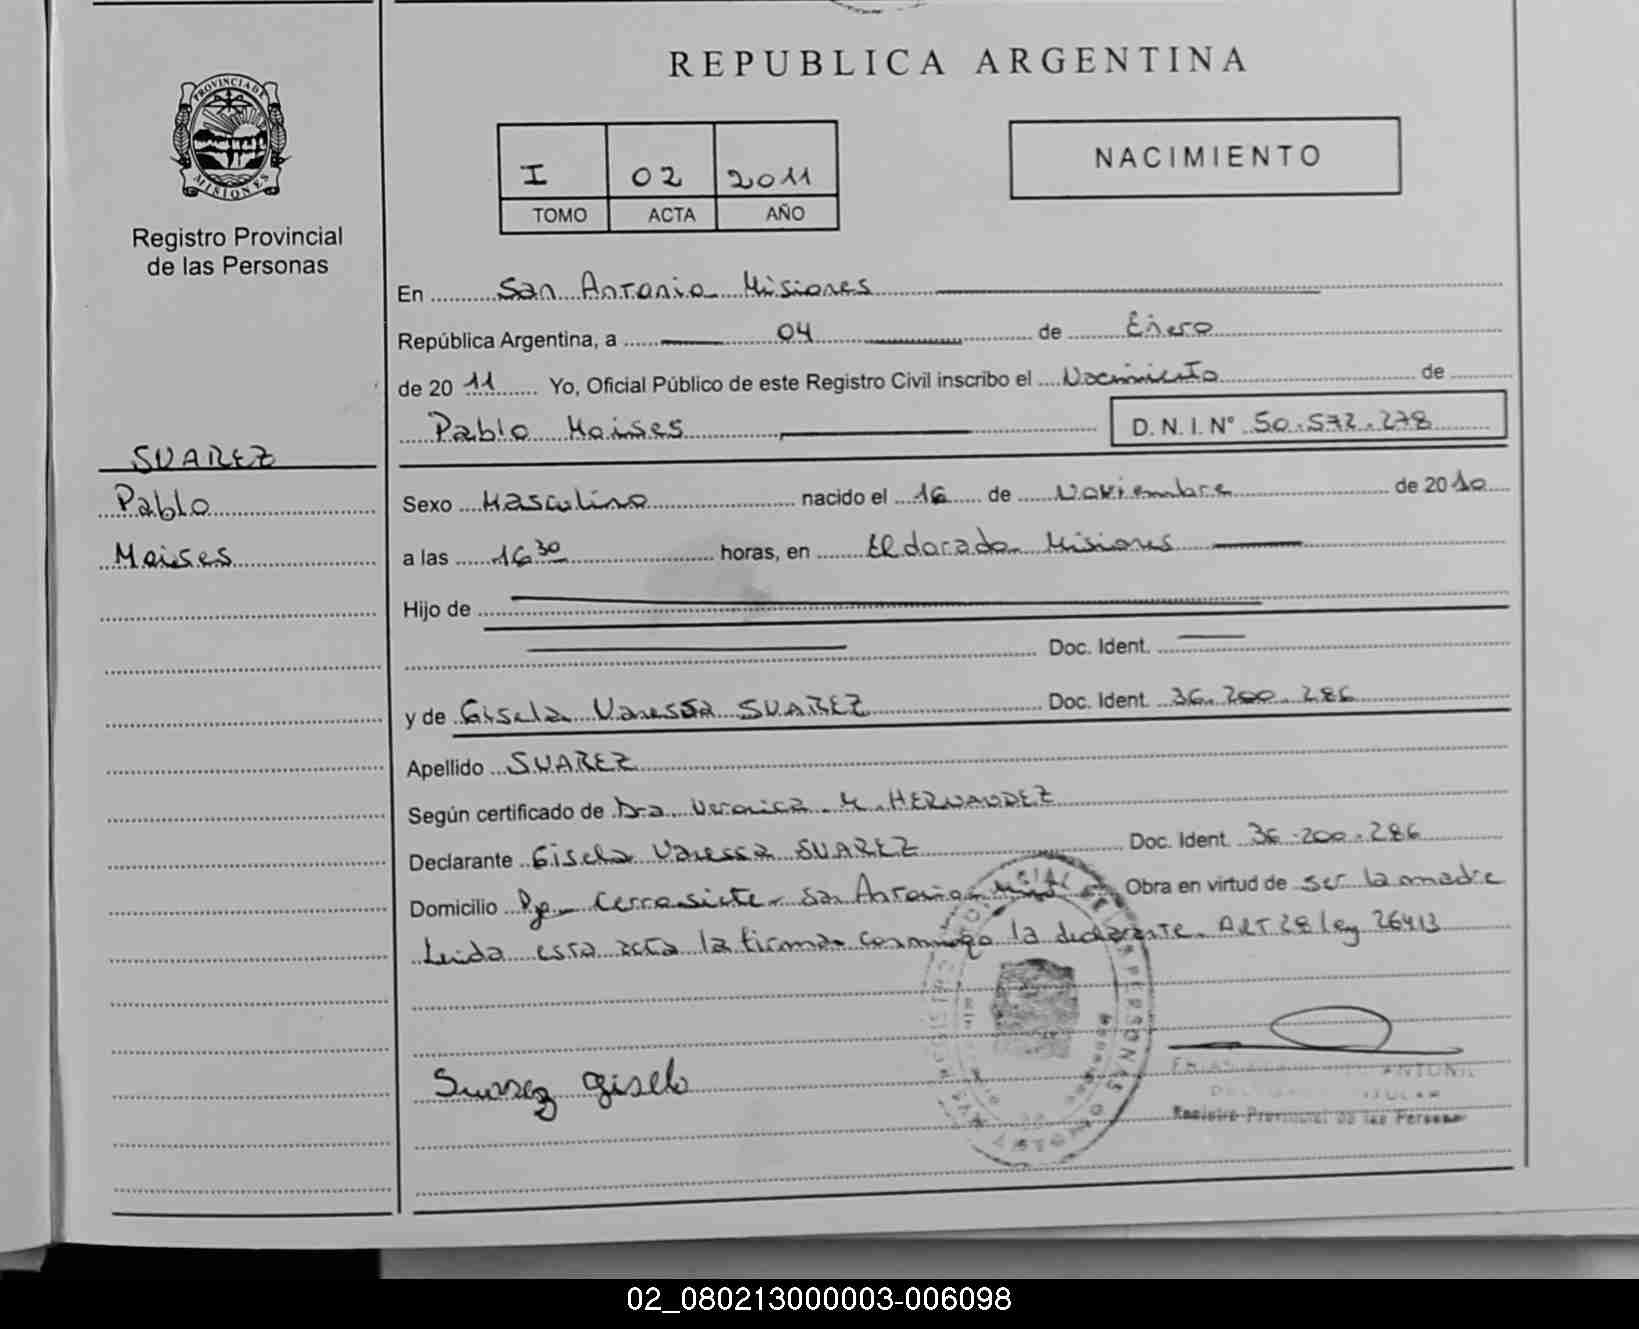 REPUBLICA ARGENTINA
PROVINCIA DE
MISIONES
Registro Provincial
de las Personas
I 02 2011
TOMO ACTA AÑO
NACIMIENTO
En San Antonio Misiones
República Argentina, a 04 de Enero
de 20 11 Yo, Oficial Público de este Registro Civil inscribo el Nacimiento de
Pablo Moises D. N. I. Nº 50.572.278
SUAREZ
Pablo
Moises
Sexo Masculino nacido el 16 de Noviembre de 20 10
a las 16 30 horas, en Eldorado Misiones
Hijo de
Doc. Ident.
y de Gisela Vanessa SUAREZ Doc. Ident. 36.200.286
Apellido SUAREZ
Según certificado de Dra. Veronica M. HERNANDEZ
Declarante Gisela Vanessa SUAREZ Doc. Ident. 36.200.286
Domicilio Cerro siete San Antonio Obra en virtud de ser la madre
Leida esta acta la firma conmigo la declarante. ART 28 ley 26413
Suarez gisela
Registro Provincial de las Personas
02_080213000003-006098